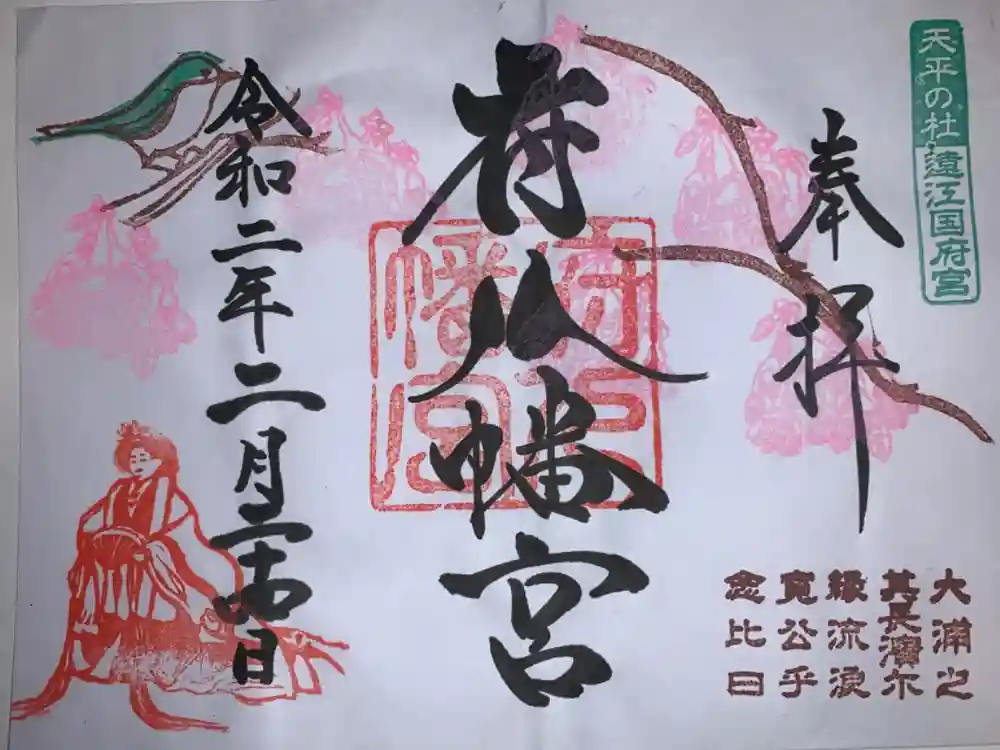 天平の杜 遠江国府宮
奉拝
府八幡宮
府八
幡宮
令和二年二月二十四日
大浦之
其長濱尓
縁流浪
寛公乎
念比日